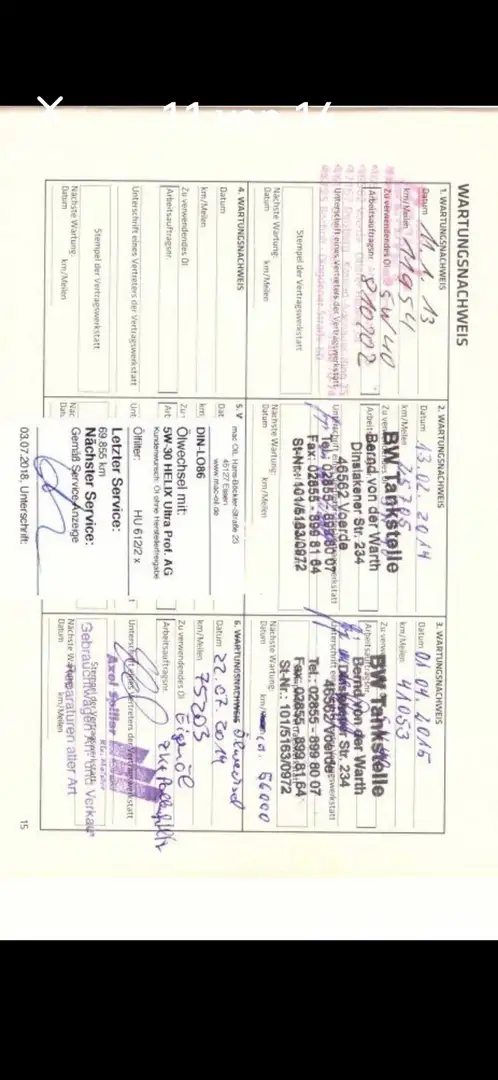 11 von 14
WARTUNGSNACHWEIS
1. WARTUNGSNACHWEIS
Datum 11.1.13
km/Meilen 11954
Zu verwendendes Öl 5W40
Arbeitsauftragsnr. 810202
Unterschrift eines Vertreters der Vertragswerkstatt
Stempel der Vertragswerkstatt
Nächste Wartung:
Datum km/Meilen
2. WARTUNGSNACHWEIS
Datum 13.02.2014
km/Meilen
Zu
Arbei
BW Tankstelle
Bernd von der Warth
Dinslakener Str. 234
46562 Voerde
Tel.: 02855 - 899 80 07
Fax: 02855 - 899 81 64
St-Nr.: 101/5163/0972
Nächste Wartung:
Datum km/Meilen
3. WARTUNGSNACHWEIS
Datum 01.04.2015
km/Meilen 41053
Zu ver
Arbeitsauftragsnr.
BW Tankstelle
Bernd von der Warth
Dinslakener Str. 234
46562 Voerde
Tel.: 02855 - 899 80 07
Fax: 02855 - 899 81 64
St-Nr.: 101/5163/0972
Nächste Wartung:
Datum 56000
4. WARTUNGSNACHWEIS
Datum
km/Meilen
Zu verwendendes Öl
Arbeitsauftragsnr.
Unterschrift eines Vertreters der Vertragswerkstatt
Stempel der Vertragswerkstatt
Nächste Wartung:
Datum km/Meilen
5. W
Dat
km
Zu
Arb
Unt
Näc
Dat
mac OIL, Hans-Böckler-Straße 25
45127 Essen
www.mac-oil.de
DIN-LO86
Ölwechsel mit:
5W-30 HELIX Ultra Prof. AG
Kundenwunsch: Öl ohne Herstellerfreigabe
Ölfilter: HU 612/2 x
Letzter Service:
69.855 km
Nächster Service:
Gemäß Service-Anzeige
03.07.2018, Unterschrift:
6. WARTUNGSNACHWEIS Ölwechsel
Datum 22.07.2019
km/Meilen 75203
Zu verwendendes Öl Eigenöl
Arbeitsauftragsnr.
Unterschrift eines Vertreters der Vertragswerkstatt
Stempel der Vertragswerkstatt
Axel
Gebrauchtwagen An- und Verkauf
Reparaturen aller Art
Nächste Wartung:
Datum km/Meilen
15